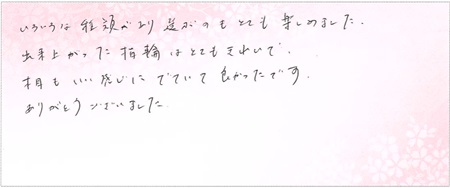 いろいろな種類があり選ぶのもとても楽しめました。
出来上がった指輪はとてもきれいで、
木目もいい感じにでていて良かったです。
ありがとうございました。